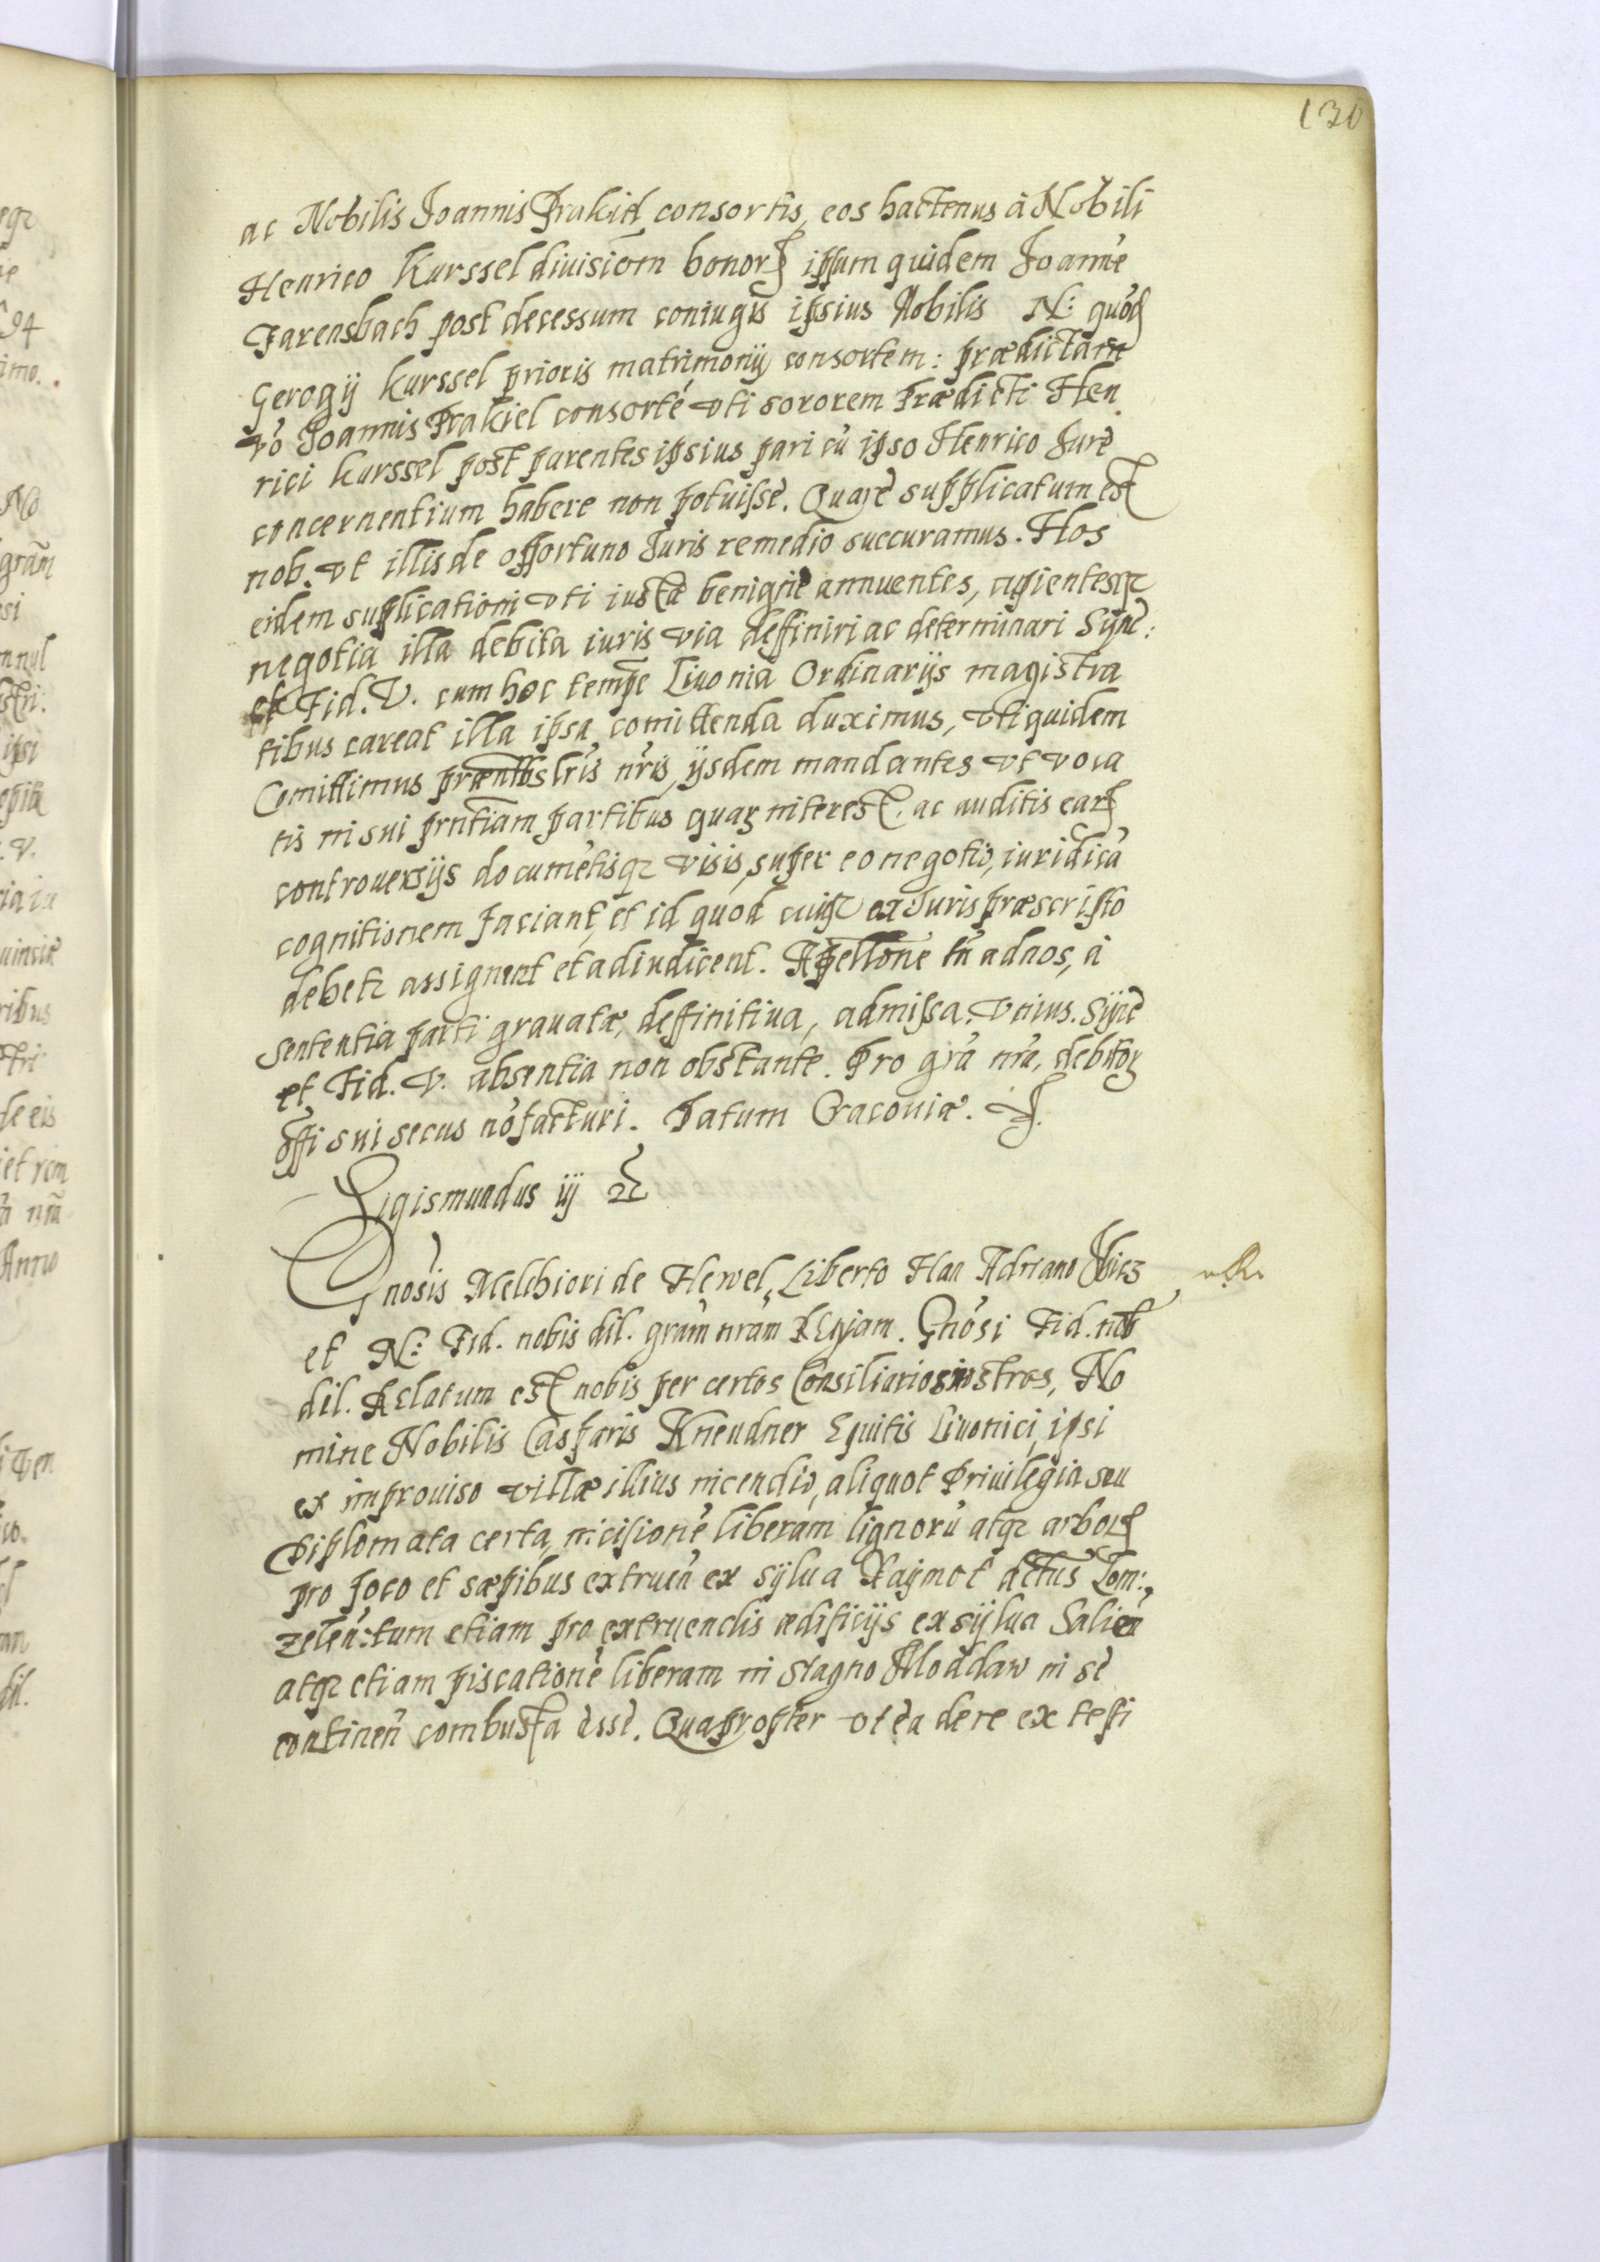 130
ac Nobilis Joannis Prakiel consortis, eos hactenus à Nobili
Henrico Kurssel diuisiom̃ bonorꝝ ipsum quidem Joanne͂
Farensbach post decessum coniugis ipsius Nobilis N: quõd
Gerogij Kurssel prioris matrimonij consortem: prædictam
võ Joannis Prakiel consorte͂ vti sororem Prædicti Hen
rici Kurssel post parentes ipsius pari cũ ipso Henrico Jure
concernentium habere non potuisse. Quare supplicatum est
nob. vt illis de opportuno Juris remedio succuramus. Nos
eidem supplicationi vti iusta benigne annuentes, cupientesqꝫ
negotia illa debita iuris via deffiniri ac determinari Sync:
et Fid. V. cum hoc tempe Liuonia Ordinarijs magistra
tibus careat illa ipsa comittenda duximus, vti quidem
Comittimus præntibs lr̃is nr̃is, ijsdem mandantes vt voca
tis in sui prñtiam partibus quaꝝ interest. ac auditis earꝝ
controuersijs documẽtisqꝫ visis, super eo negotio, iuridicã
cognitionem faciant, et id quod cuiqꝫ ex Juris præscripto
debetꝛ assignent et adiudicent. Apellone tñ ad nos, à
sententia parti grauatæ, deffinitiua, admissa. Vnius. Sync
et Fid. V. absentia non obstante. Pro grã nrã, debitoꝝ
offi sui secus nõ facturi. Datum Cracouiæ.
Sigismundus iij
Gnosis Melchiori de Hewel, Liberto Haa Adriano
et N: Fid. nobis dil. grãm nrãm Regiam. Gnõsi Fid. nob
dil. Relatum est nobis per certos Consiliarios nostros, No
mine Nobilis Casparis Kneudner Equitis Liuonici, ipsi
ex improuiso villæ illius incendio, aliquot Priuilegia seu
Diplomata certa, incisione͂ liberam lignorũ atqꝫ arborꝝ
pro foco et sæpibus extruen͂ ex sylua Raymot actus Lom:
zelen͂: tum etiam pro extruendis ædificijs ex sylua Salien͂
atqꝫ etiam piscatione͂ liberam in stagno Moddaw in se
continen͂ combusta esse. Quapropter vt ea de re ex testi